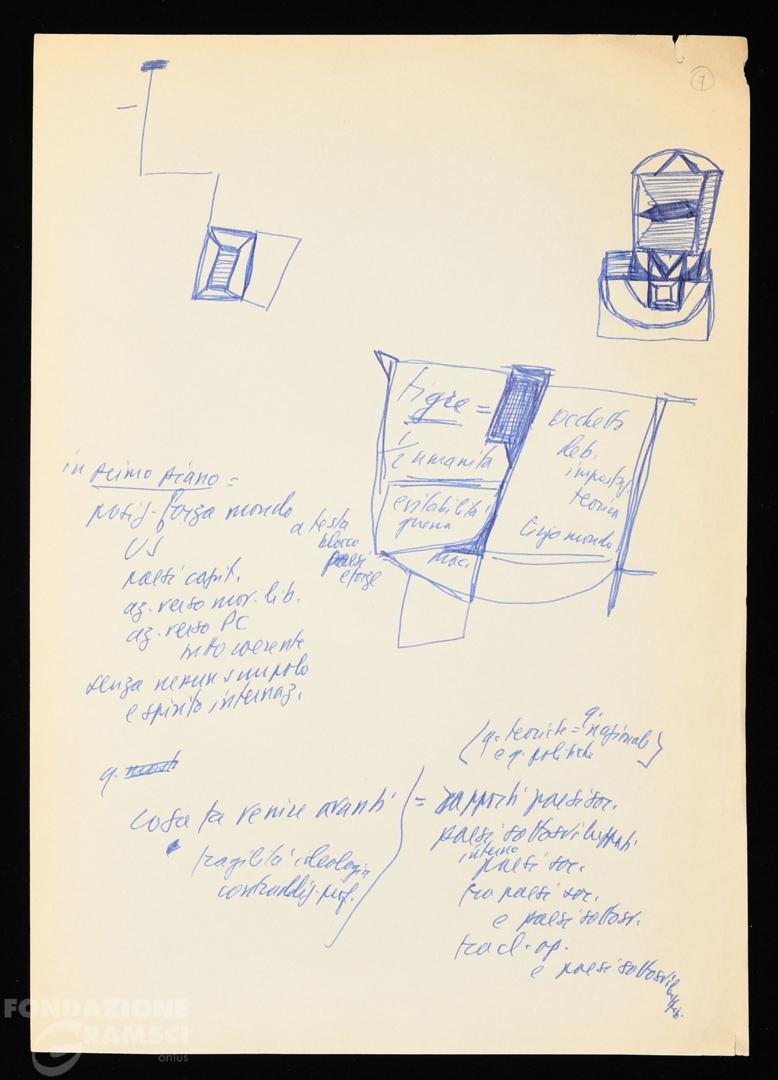 7
tigre =
umanità
evitabilità
guerra
Occhetto
deb.
impostaz.
teorica
Cina mondo
in primo piano =
posiz. forza mondo
US
paesi capit.
az. verso mov. lib.
az. verso PC
tutto coerente
senza nessun scrupolo
e spirito internaz.
a testa
blocco
paesi
q.
cosa fa venire avanti
fragilità ideologia
contraddiz. prof.
(q. teoriche = q. nazionale
e q. politiche)
= rapporti paesi soc.
paesi sottosviluppati
interno
paesi soc.
fra paesi soc.
e paesi sottosv.
fra cl. op.
e paesi sottosvilupp.
FONDAZIONE
GRAMSCI
onlus